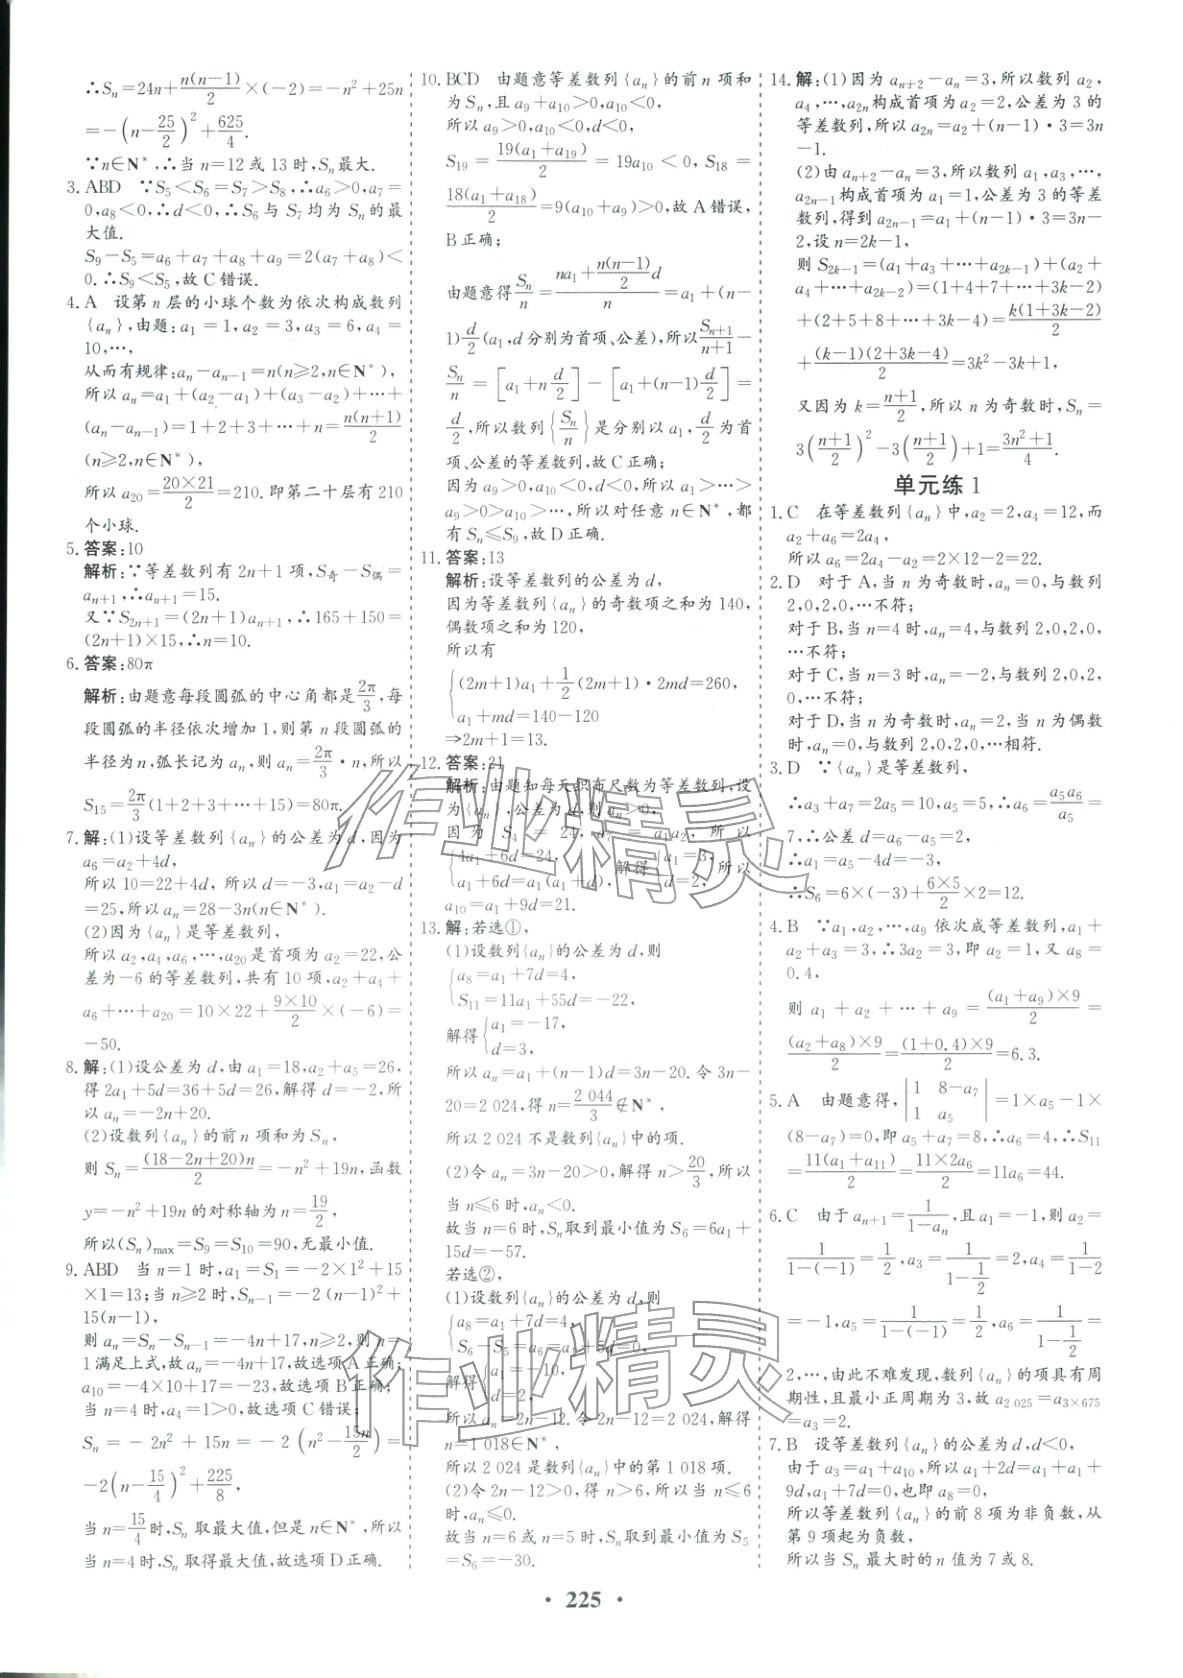 ∴Sₙ=24n+n(n-1)/2×(-2)=-n²+25n
=-(n-25/2)²+625/4.
∵n∈N*,∴当 n=12 或 13 时,Sₙ最大.
3. ABD　∵S₅<S₆=S₇>S₈,∴a₆>0,a₇=
0,a₈<0,∴d<0,∴S₆与 S₇均为 Sₙ的最
大值.
S₉-S₅=a₆+a₇+a₈+a₉=2(a₇+a₈)<
0.∴S₉<S₅,故 C 错误.
4. A　设第 n 层的小球个数为依次构成数列
{aₙ},由题:a₁=1,a₂=3,a₃=6,a₄=
10,…,
从而有规律:aₙ-aₙ₋₁=n(n≥2,n∈N*),
所以 aₙ=a₁+(a₂-a₁)+(a₃-a₂)+…+
(aₙ-aₙ₋₁)=1+2+3+…+n=n(n+1)/2
(n≥2,n∈N*),
所以 a₂₀=20×21/2=210.即第二十层有 210
个小球.
5. 答案:10
解析:∵等差数列有 2n+1 项,S奇-S偶=
aₙ₊₁,∴aₙ₊₁=15.
又∵S₂ₙ₊₁=(2n+1)aₙ₊₁,∴165+150=
(2n+1)×15,∴n=10.
6. 答案:80π
解析:由题意每段圆弧的中心角都是2π/3,每
段圆弧的半径依次增加 1,则第 n 段圆弧的
半径为 n,弧长记为 aₙ,则 aₙ=2π/3·n,所以
S₁₅=2π/3(1+2+3+…+15)=80π.
7. 解:(1)设等差数列{aₙ}的公差为 d,因为
a₆=a₂+4d,
所以 10=22+4d, 所以 d=-3,a₁=a₂-d
=25,所以 aₙ=28-3n(n∈N*).
(2)因为{aₙ}是等差数列,
所以 a₂,a₄,a₆,…,a₂₀是首项为 a₂=22,公
差为-6 的等差数列,共有 10 项,a₂+a₄+
a₆+…+a₂₀=10×22+9×10/2×(-6)=
-50.
8. 解:(1)设公差为 d,由 a₁=18,a₂+a₅=26,
得 2a₁+5d=36+5d=26,解得 d=-2,所
以 aₙ=-2n+20.
(2)设数列{aₙ}的前 n 项和为 Sₙ,
则 Sₙ=(18-2n+20)n/2=-n²+19n,函数
y=-n²+19n 的对称轴为 n=19/2,
所以(Sₙ)max=S₉=S₁₀=90,无最小值.
9. ABD　当 n=1 时,a₁=S₁=-2×1²+15
×1=13;当 n≥2 时,Sₙ₋₁=-2(n-1)²+
15(n-1),
则 aₙ=Sₙ-Sₙ₋₁=-4n+17,n≥2,则 n=
1满足上式,故 aₙ=-4n+17,故选项 A 正确;
a₁₀=-4×10+17=-23,故选项 B 正确;
当 n=4 时,a₄=1>0,故选项 C 错误;
Sₙ=-2n²+15n=-2(n²-15n/2)=
-2(n-15/4)²+225/8,
当 n=15/4时,Sₙ取最大值,但是 n∈N*,所以
当 n=4 时,Sₙ取得最大值,故选项 D 正确.
10. BCD　由题意等差数列{aₙ}的前 n 项和
为 Sₙ,且 a₉+a₁₀>0,a₁₀<0,
所以 a₉>0,a₁₀<0,d<0,
S₁₉=19(a₁+a₁₉)/2=19a₁₀<0,S₁₈=
18(a₁+a₁₈)/2=9(a₁₀+a₉)>0,故 A 错误,
B 正确;
由题意得Sₙ/n=(na₁+n(n-1)/2 d)/n=a₁+(n-
1)d/2(a₁,d 分别为首项、公差),所以Sₙ₊₁/(n+1)-
Sₙ/n=[a₁+n d/2]-[a₁+(n-1)d/2]=
d/2,所以数列{Sₙ/n}是分别以 a₁,d/2为首
项、公差的等差数列,故 C 正确;
因为 a₉>0,a₁₀<0,d<0,所以 a₁>…>
a₉>0>a₁₀>…,所以对任意 n∈N*,都
有 Sₙ≤S₉,故 D 正确.
11. 答案:13
解析:设等差数列的公差为 d,
因为等差数列{aₙ}的奇数项之和为 140,
偶数项之和为 120,
所以有
{(2m+1)a₁+1/2(2m+1)·2md=260,
a₁+md=140-120
⇒2m+1=13.
12. 答案:21
解析:由题知每天织布尺数为等差数列,设
为{aₙ},公差为 d,则 aₙ>0,
因为 S₄=24, a₇=a₁a₂, 所以
{4a₁+6d=24, a₁+6d=a₁(a₁+d), 解得{a₁=3, d=2, 所以
a₁₀=a₁+9d=21.
13. 解:若选①,
(1)设数列{aₙ}的公差为 d,则
{a₈=a₁+7d=4,
S₁₁=11a₁+55d=-22,
解得{a₁=-17,
d=3,
所以 aₙ=a₁+(n-1)d=3n-20.令 3n-
20=2 024,得 n=2 044/3∉N*,
所以 2 024 不是数列{aₙ}中的项.
(2)令 aₙ=3n-20>0,解得 n>20/3,所以
当 n≤6 时,aₙ<0.
故当 n=6 时,Sₙ取到最小值为 S₆=6a₁+
15d=-57.
若选②,
(1)设数列{aₙ}的公差为 d,则
{a₈=a₁+7d=4,
S₆-S₅=a₁+5d=0,
解得{a₁=-10,
d=2.
所以 aₙ=2n-12.令 2n-12=2 024,解得
n=1 018∈N*.
所以 2 024 是数列{aₙ}中的第 1 018 项.
(2)令 2n-12>0,得 n>6,所以当 n≤6
时,aₙ≤0.
故当 n=6 或 n=5 时,Sₙ取到最小值为 S₅
=S₆=-30.
14. 解:(1)因为 aₙ₊₂-aₙ=3,所以数列 a₂,
a₄,…,a₂ₙ构成首项为 a₂=2,公差为 3 的
等差数列,所以 a₂ₙ=a₂+(n-1)·3=3n
-1.
(2)由 aₙ₊₂-aₙ=3,所以数列 a₁,a₃,…,
a₂ₙ₋₁构成首项为 a₁=1,公差为 3 的等差
数列,得到 a₂ₙ₋₁=a₁+(n-1)·3=3n-
2,设 n=2k-1,
则 S₂ₖ₋₁=(a₁+a₃+…+a₂ₖ₋₁)+(a₂+
a₄+…+a₂ₖ₋₂)=(1+4+7+…+3k-2)
+(2+5+8+…+3k-4)=k(1+3k-2)/2
+(k-1)(2+3k-4)/2=3k²-3k+1,
又因为 k=(n+1)/2,所以 n 为奇数时,Sₙ=
3((n+1)/2)²-3((n+1)/2)+1=(3n²+1)/4.
单元练 1
1. C　在等差数列{aₙ}中,a₂=2,a₄=12,而
a₂+a₆=2a₄,
所以 a₆=2a₄-a₂=2×12-2=22.
2. D　对于 A,当 n 为奇数时,aₙ=0,与数列
2,0,2,0,…不符;
对于 B,当 n=4 时,aₙ=4,与数列 2,0,2,0,
…不符;
对于 C,当 n=3 时,aₙ=-2,与数列 2,0,2,
0,…不符;
对于 D,当 n 为奇数时,aₙ=2,当 n 为偶数
时,aₙ=0,与数列 2,0,2,0,…相符.
3. D　∵{aₙ}是等差数列,
∴a₃+a₇=2a₅=10,a₅=5,∴a₆=a₅a₆/a₅=
7,∴公差 d=a₆-a₅=2,
∴a₁=a₅-4d=-3,
∴S₆=6×(-3)+6×5/2×2=12.
4. B　∵a₁,a₂,…,a₉依次成等差数列,a₁+
a₂+a₃=3,∴3a₂=3,即 a₂=1,又 a₈=
0.4,
则 a₁+a₂+…+a₉=(a₁+a₉)×9/2=
(a₂+a₈)×9/2=(1+0.4)×9/2=6.3.
5. A　由题意得,|1　8-a₇
1　a₅|=1×a₅-1×
(8-a₇)=0,即 a₅+a₇=8,∴a₆=4,∴S₁₁
=11(a₁+a₁₁)/2=11×2a₆/2=11a₆=44.
6. C　由于 aₙ₊₁=1/(1-aₙ),且 a₁=-1,则 a₂=
1/(1-(-1))=1/2,a₃=1/(1-1/2)=2,a₄=1/(1-2)
=-1,a₅=1/(1-(-1))=1/2,a₆=1/(1-1/2)=
2,…,由此不难发现,数列{aₙ}的项具有周
期性,且最小正周期为 3,故 a₂ ₀₂₅=a₃×₆₇₅
=a₃=2.
7. B　设等差数列{aₙ}的公差为 d,d<0,
由于 a₃=a₁+a₁₀,所以 a₁+2d=a₁+a₁+
9d,a₁+7d=0,也即 a₈=0,
所以等差数列{aₙ}的前 8 项为非负数,从
第 9 项起为负数,
所以当 Sₙ最大时的 n 值为 7 或 8.
作业精灵
作业精灵
· 225 ·